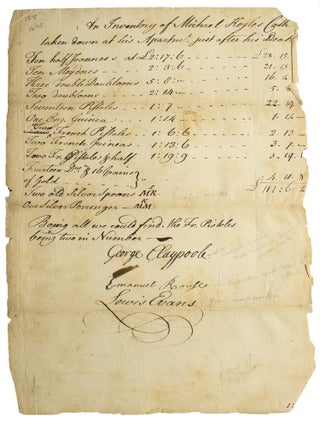 An Inventory of Michael Hoyles Cash
taken down at his Apartmt. just after his Death
Ten half Joannes's at £2:17:6 -- £28.15.
Ten Moydores 2:3:6 -- 21.15
Three Double Doubloons 5:8 -- 16.4
Two doubloons 2:14 -- 5.8
Seventeen Pistoles 1:7 -- 22.19
One Eng. Guinea 1:14 -- 1.14
Two French Pistoles 1:6:6 -- 2.13
Two French Guineas 1:13:6 -- 3.7
Two Fr. Pistoles & half 1:19:9 -- 3.19
Fourteen Dwt & 16 Grains
of Gold 4 4 8
Two old Silver Spoons MR £111:6:2
One Silver Porringer MM
Being all we could find. the Fr. Pistoles
being two in Number
George Claypoole
Emanuel Rouse
Lewis Evans